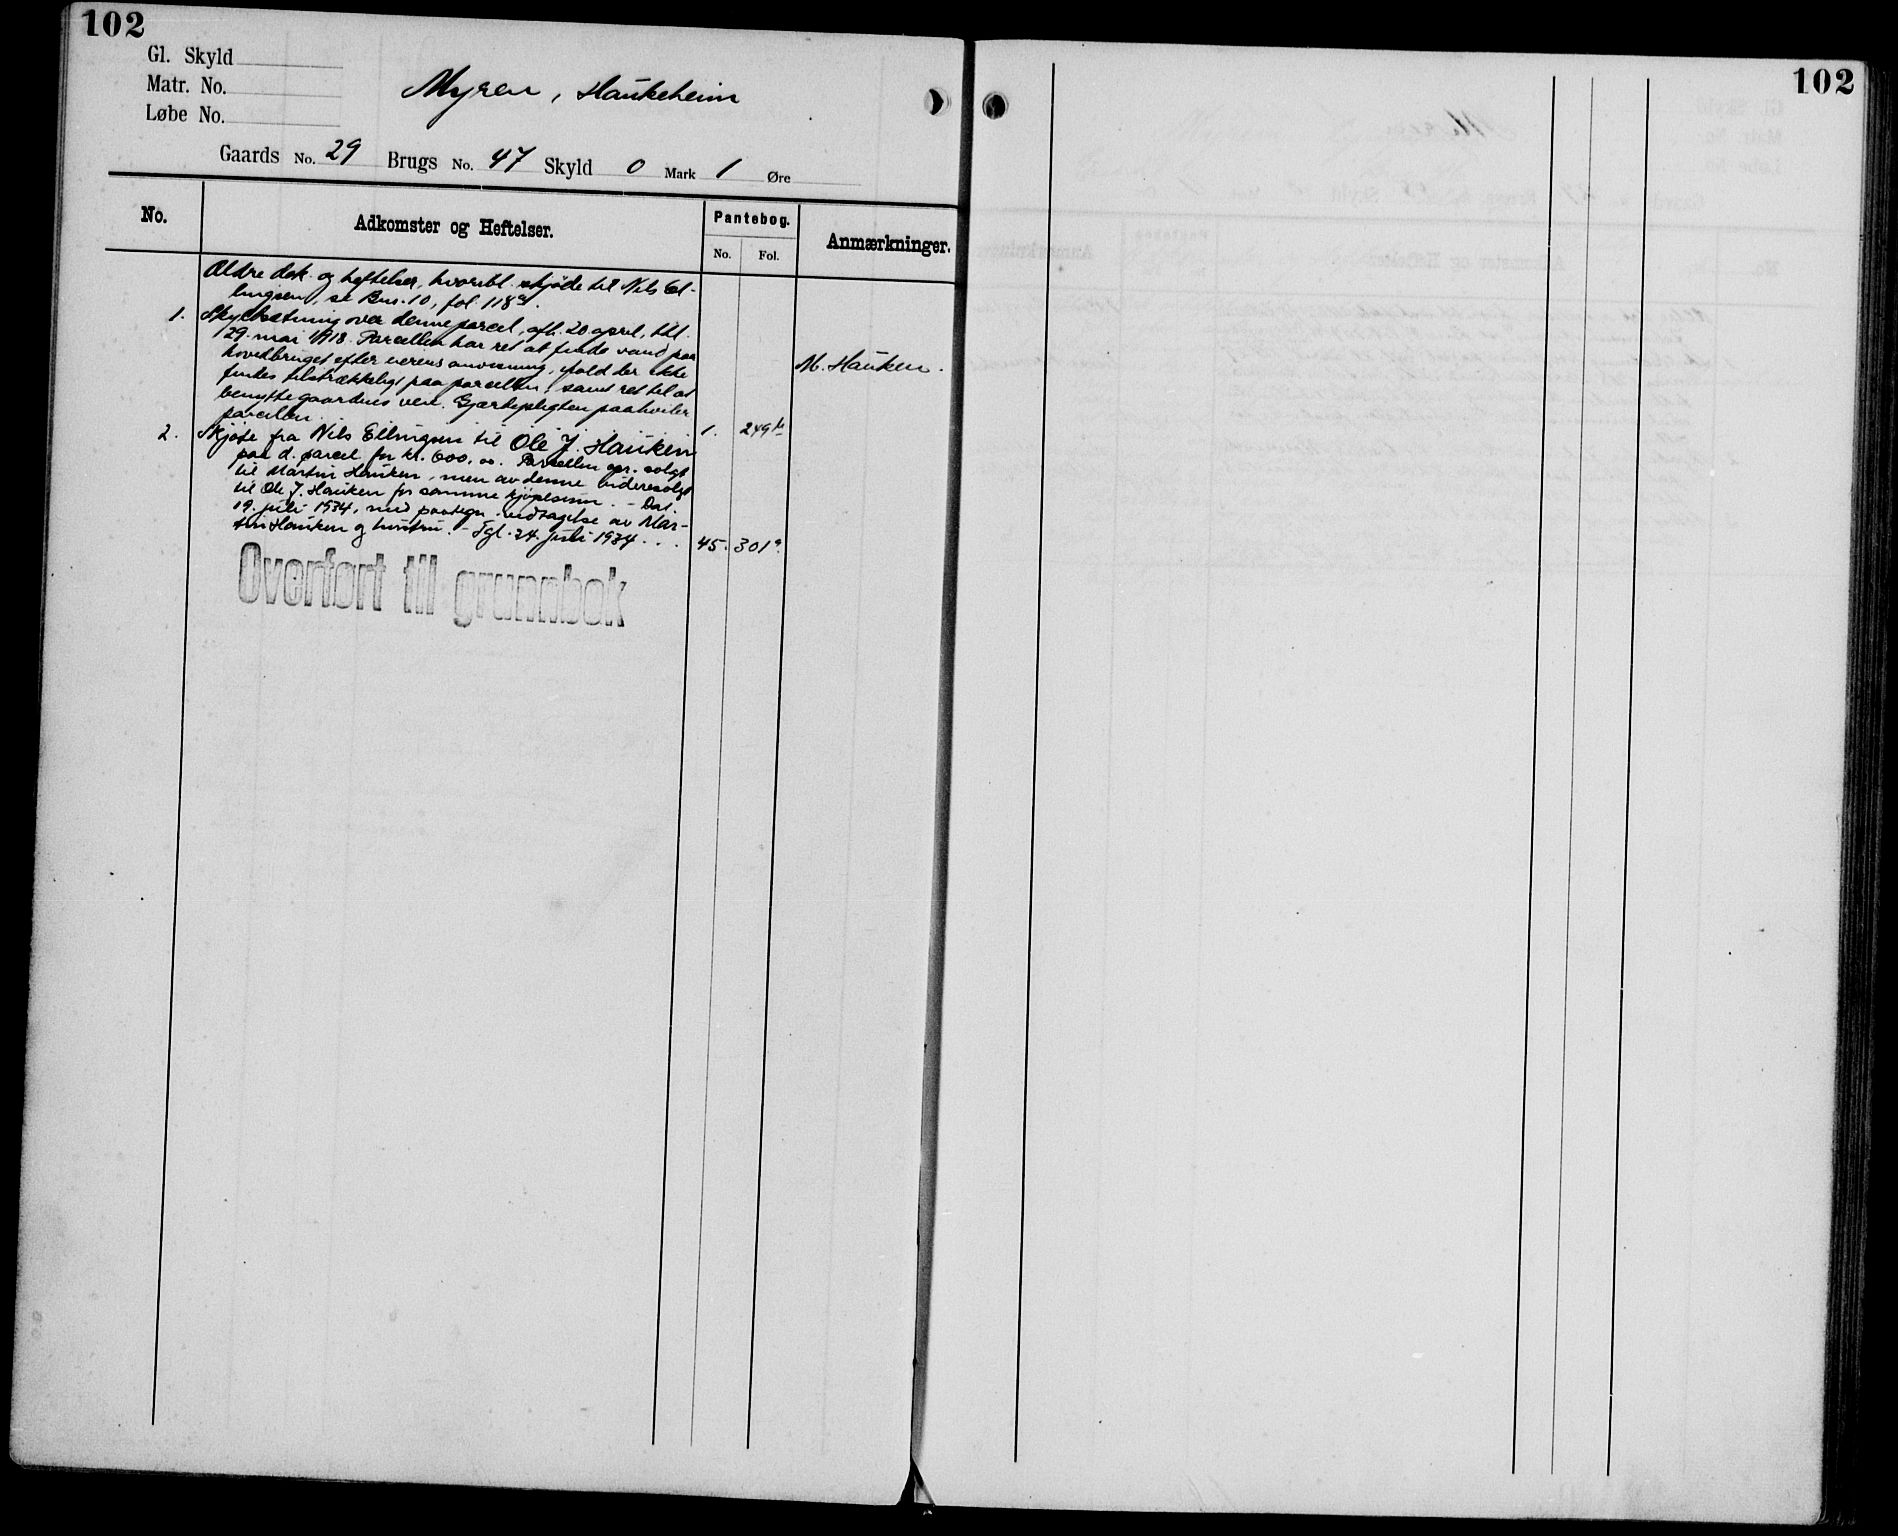 102
Gl. Skyld
Matr. No.
Løbe No.
Myren, Haukeheim
Gaards No. 29 Brugs No. 47 Skyld 0 Mark 1 Øre
No.
Adkomster og Heftelser.
Pantebog.
No. Fol.
Anmærkninger.
Ældre dok. og heftelser, hvoribl. skjøde til Nils El-
lingsen, se Bnr. 10, fol. 118
1. Skyldsætning over denne parcel, afh. 20 april, thl.
29. mai 1918. Parcellen har ret at finde vand paa
hovedbruget efter eierens anvisning, ifald der ikke
M. Hauken.
findes tilstrækkeligt paa parcellen, samt ret til at
benytte gaardens vei. Gjærdepligten paahviler
parcellen. 1. 249 b
2. Skjøte fra Nils Ellingsen til Ole J. Hauken
paa d. parcel for kr. 600.00. Parcellen opr. solgt
til Martin Hauken, men av denne videresolgt
til Ole J. Hauken for samme kjøpesum. - Dat.
19. juli 1934, med paategn. vedtagelse av Mar-
tin Hauken og hustru. - Tgl. 24. juli 1934 . . . 45. 301 a.
Overført till grunnbok
102